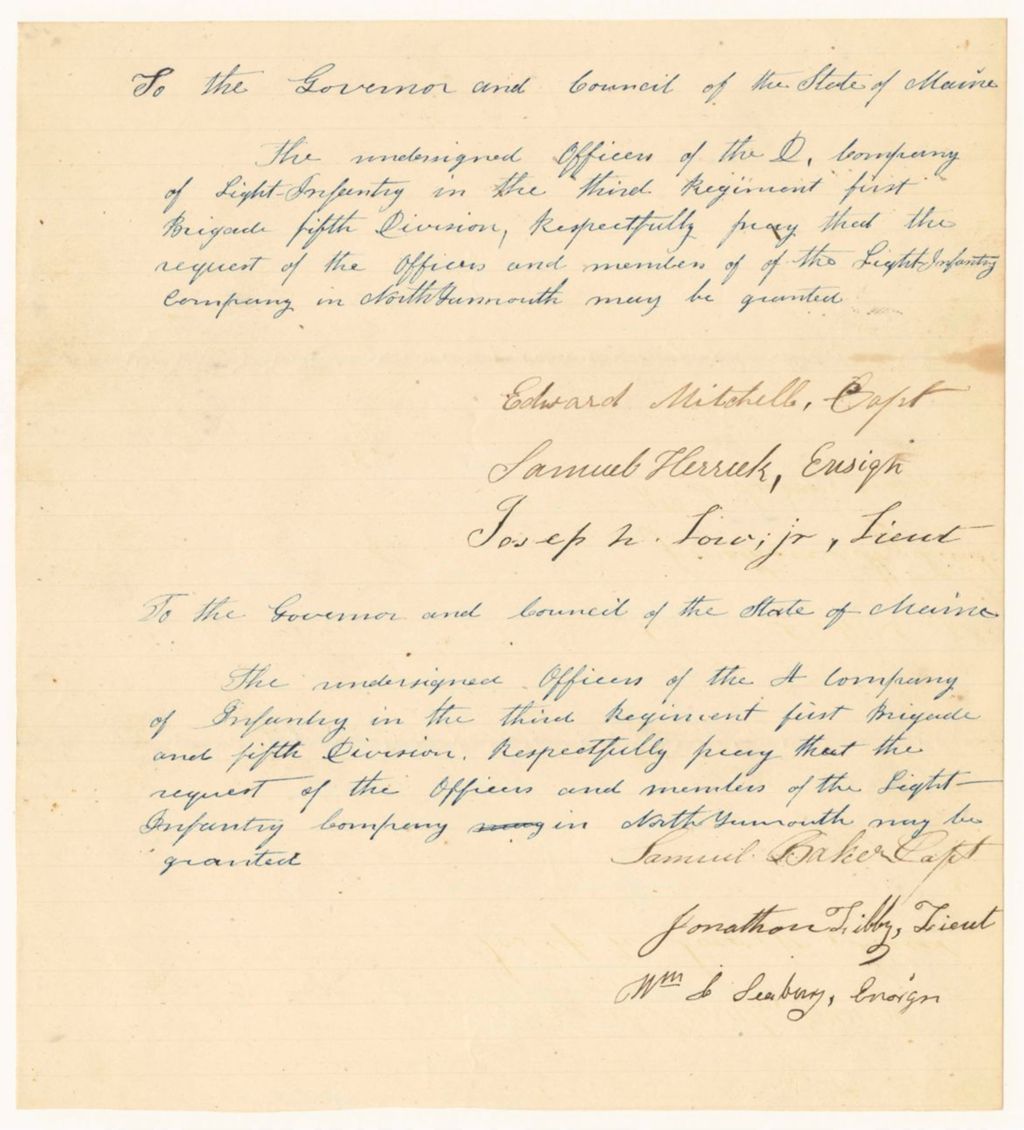 To the Governor and Council of the State of Maine
The undersigned Officers of the D. Company
of Light-Infantry in the third Regiment first
Brigade fifth Division, Respectfully pray that the
request of the Officers and members of of the Light-Infantry
Company in North Yarmouth may be granted
Edward Mitchell, Capt
Samuel Herrick, Ensign
Joseph Low, jr, Lieut
To the Governor and Council of the State of Maine
The undersigned Officers of the A Company
of Infantry in the third Regiment first Brigade
and fifth Division. Respectfully pray that the
request of the Officers and members of the Light-
Infantry Company may in North Yarmouth may be
granted
Samuel Baker Capt
Jonathan Libby, Lieut
Wm S Seabury, Ensign